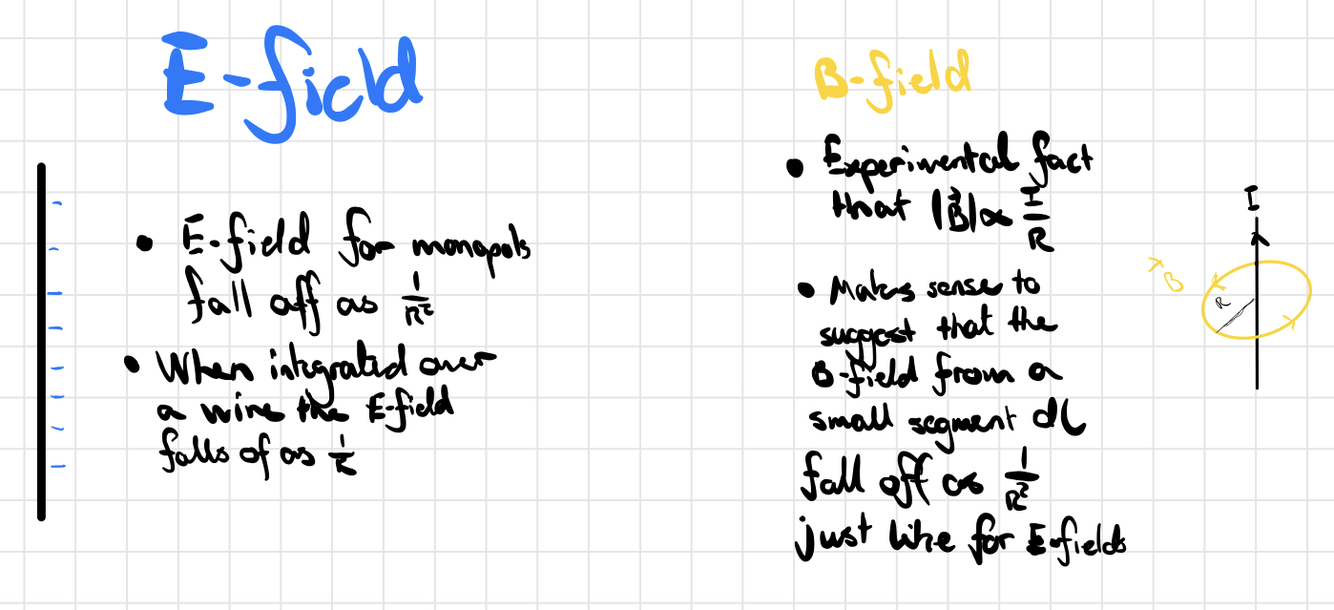 E-field
• E-field for monopols
fall off as 1/R²
• When integrated over
a wire the E-field
falls of as 1/R
B-field
• Experimental fact
that |B⃗| ∝ I/R
• Makes sense to
suggest that the
B-field from a
small segment dL
fall off as 1/R²
just like for E-fields
I
B
R